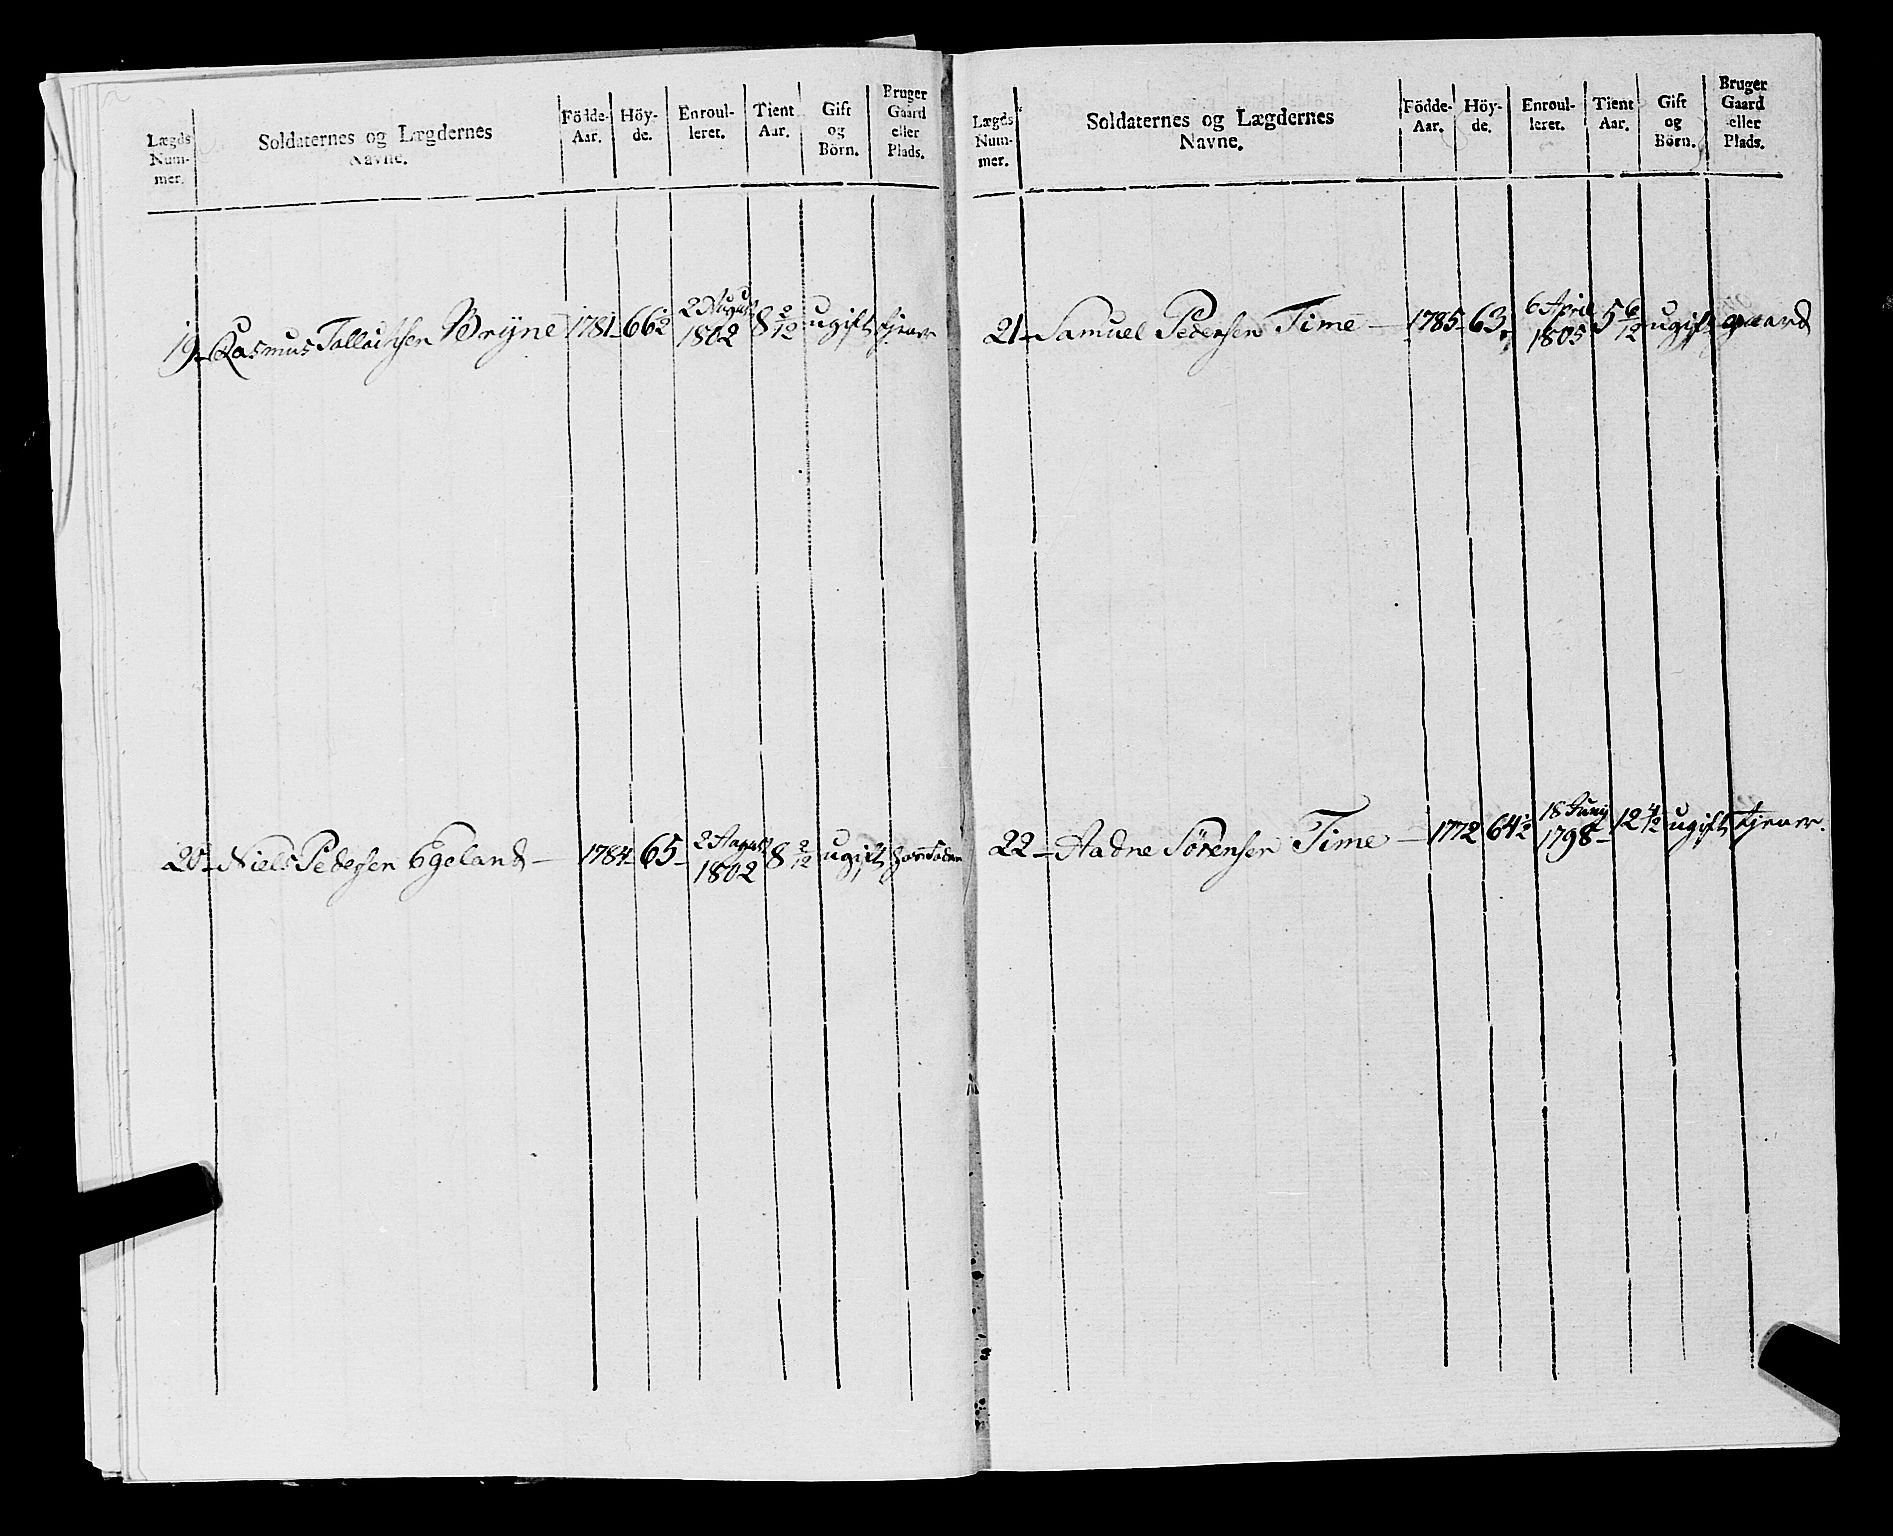 Lægds Num- mer. Soldaternes og Lægdernes Navne. Födde- Aar. Höy- de. Enroul- leret. Tient Aar. Gift og Börn. Bruger Gaard eller Plads.
19 Rasmus Bryne 1781 66½ 2 August 1802 8 2/12 ugift tjener
20 Niels Pedersen Egeland 1784 65 2 August 1802 8 2/12 ugift
Lægds Num- mer. Soldaternes og Lægdernes Navne. Födde- Aar. Höy- de. Enroul- leret. Tient Aar. Gift og Börn. Bruger Gaard eller Plads.
21 Samuel Pedersen Time 1785 63 6 April 1805 5 6/12 ugift gaard
22 Aadne Sörensen Time 1772 64½ 18 Juny 1798 12 4/12 ugift tjener.